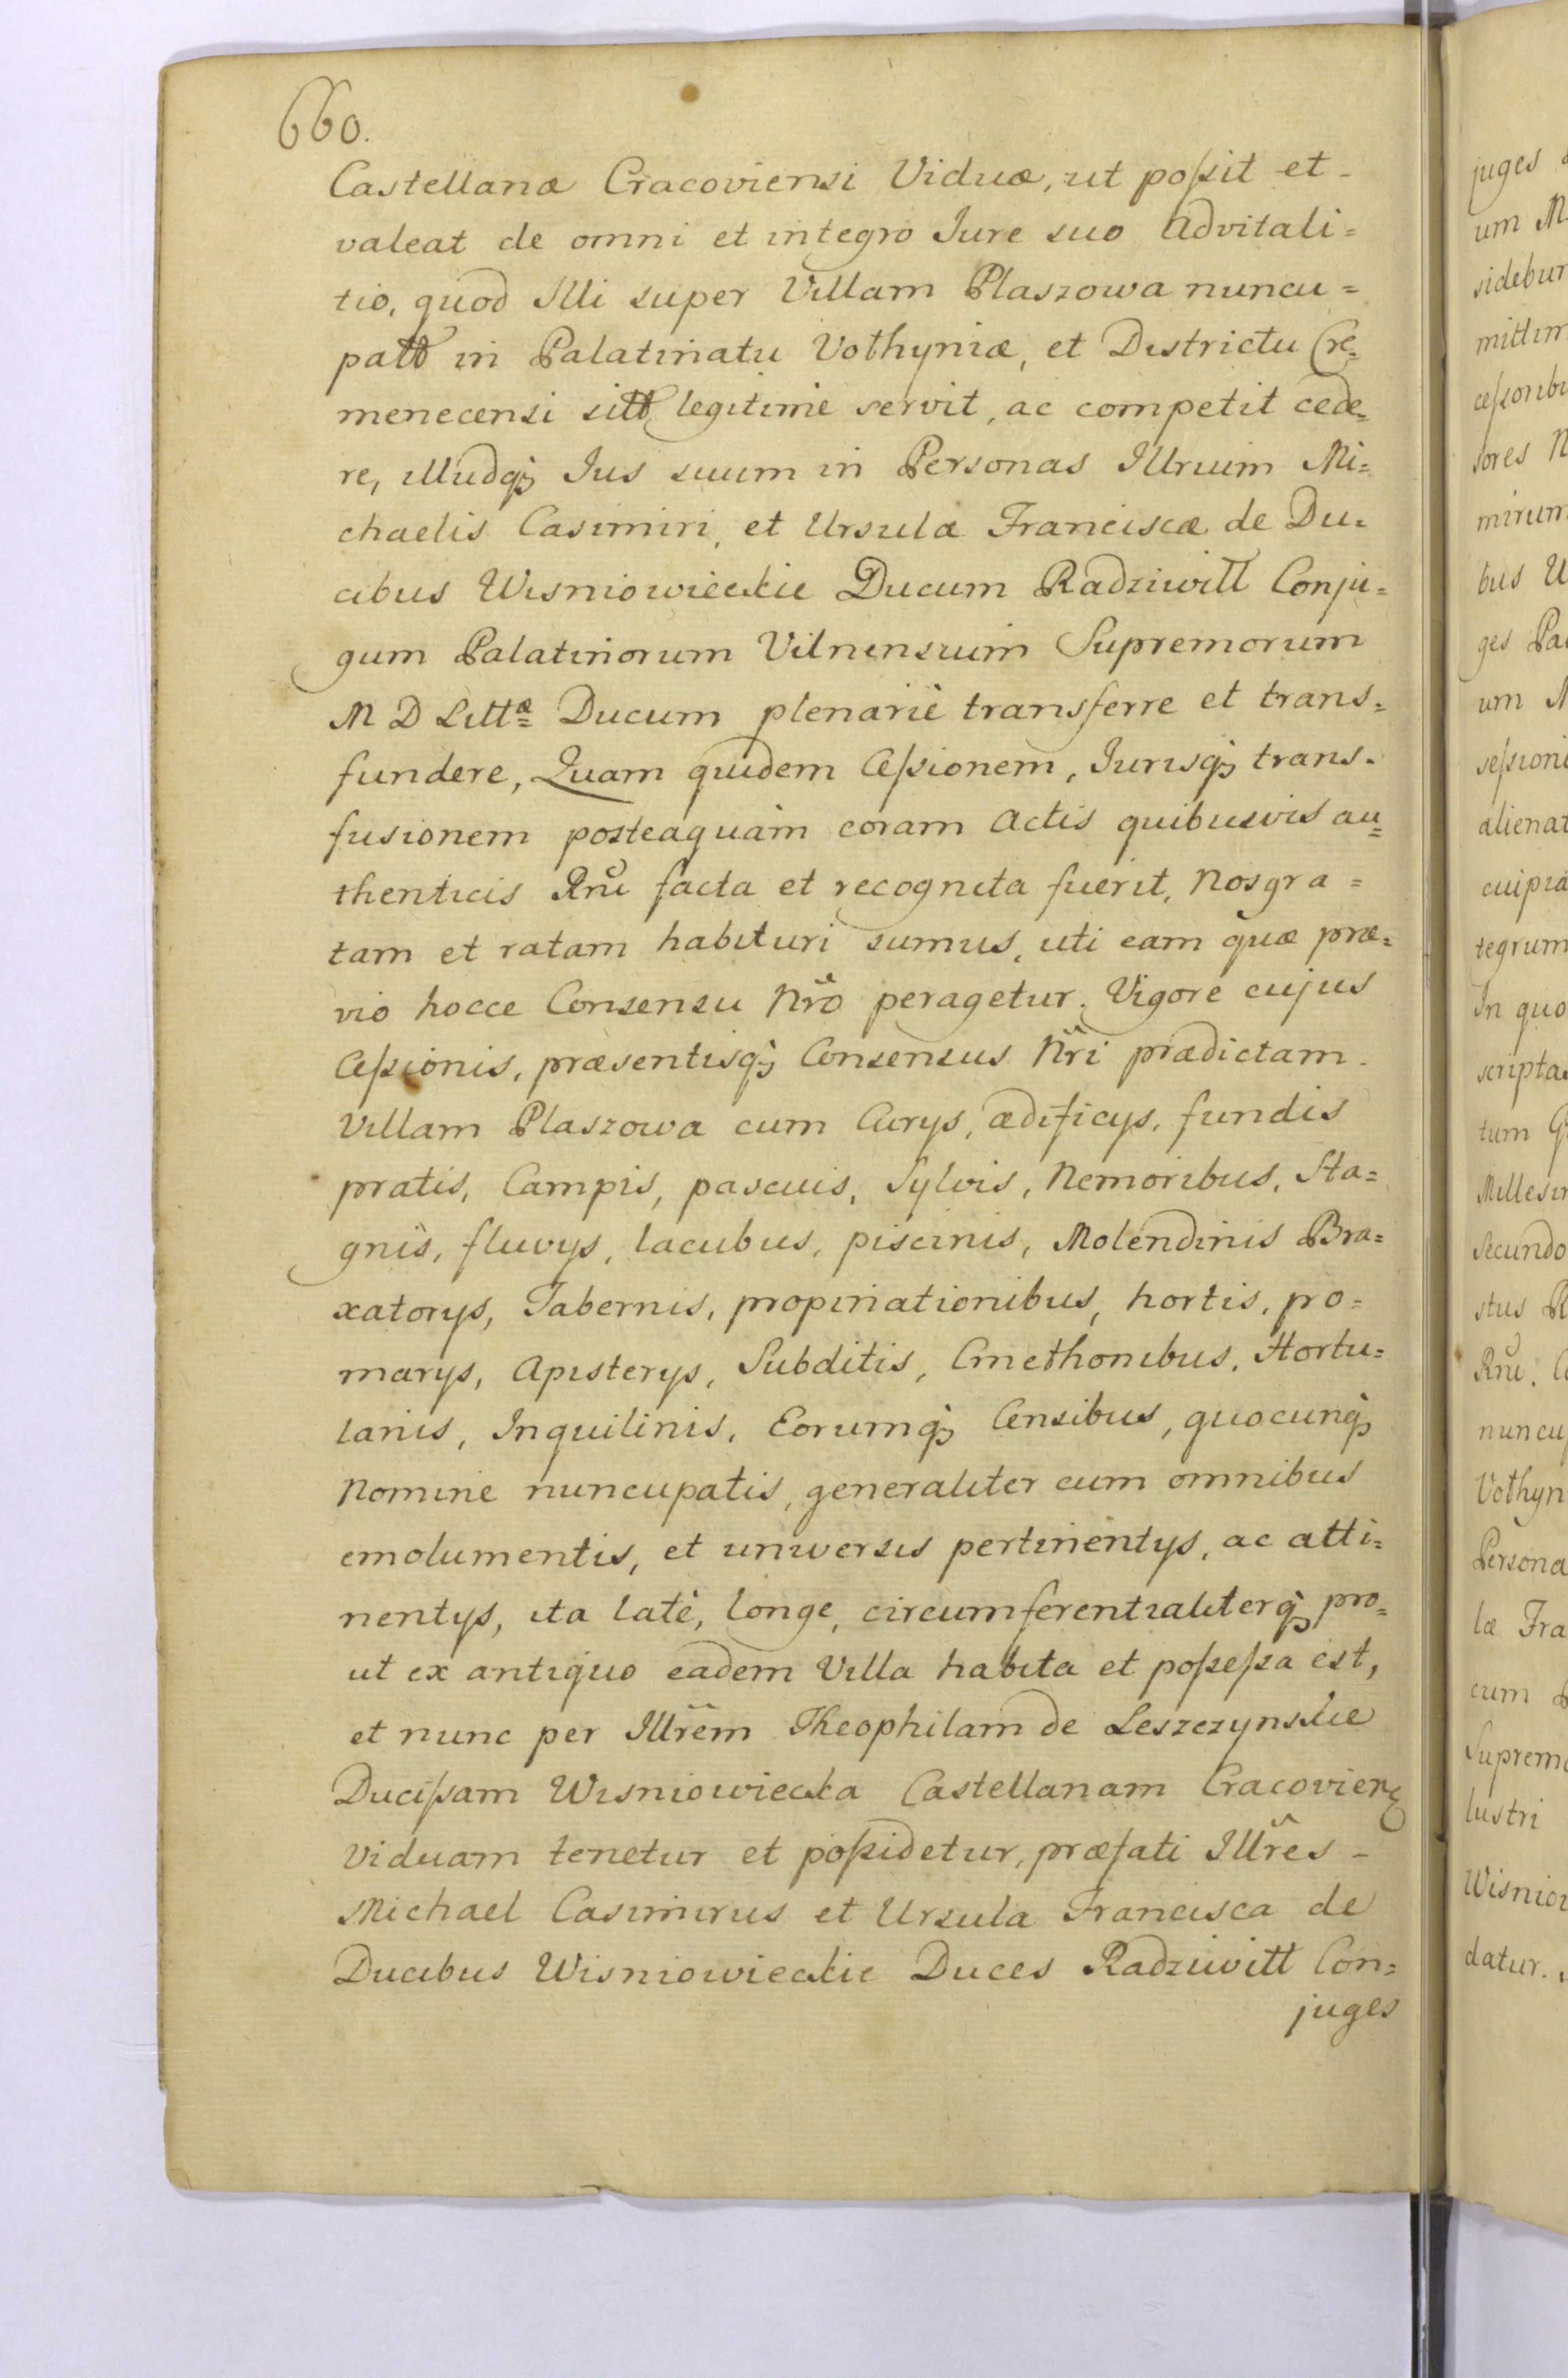 660.
Castellanæ Cracoviensi Viduæ, ut poſsit et-
valeat de omni et integro Jure suo Advitali=
tio, quod Illi super Villam Plaszowa nuncu=
patt in Palatinatu Vołhyniæ, et Districtu Cre=
menecensi sitt legitime servit, ac competit cede=
re, illudq₃ Jus suum in Personas Illrium Mi=
chaelis Casimiri, et Ursulæ Franciscæ de Du=
cibus Wisniowieckie Ducum Radziwiłł Conju=
gum Palatinorum Vilnensium Supremorum
M D Littæ Ducum plenariè transferre et trans=
fundere, Quam quidem Ceſsionem, Jurisq₃ trans=
fusionem posteaquàm coram Actis quibusvis au=
thenticis Rnu facta et recognita fuerit, Nos gra=
tam et ratam habituri sumus, uti eam quæ præ=
vio hocce Consensu Nro peragetur. Vigore cujus
Ceſsionis, præsentisq₃ Consensus Nri prædictam
Villam Plaszowa cum Curys, ædificys, fundis
pratis, Campis, pascuis, Sylvis, Nemoribus, Sta=
gnis, fluvys, lacubus, piscinis, Molendinis Bra=
xatorys, Tabernis, propinationibus, hortis, po=
marys, Apisterys, Subditis, Cmethonibus, Hortu=
lanis, Inquilinis, Eorumq₃ Censibus, quocunq₃
Nomine nuncupatis, generaliter cum omnibus
emolumentis, et universis pertinentys, ac atti=
nentys, ita latè, longe, circumferentialiterq₃ pro=
ut ex antiquo eadem Villa habita et poſseſsa est,
et nunc per Illrem Theophilam de Leszczynskie
Duciſsam Wisniowiecka Castellanam Cracovien
Viduam tenetur et poſsidetur, præfati Illres-
Michael Casimirus et Ursula Francisca de
Ducibus Wisniowieckie Duces Radziwiłł Con=
juges
juges
um M
sidebun
mittim
ceſsoribu
sores N
mirum
bus U
ges Pa
um M
seſsioni
alienat
cuipia
tegrum
In quo
scriptas
tum
Millesim
Secundo
stus
Rnu.
nuncup
Vołhyn
Persona
læ Fra
cum
Supremo
lustri
Wisniow
datur.